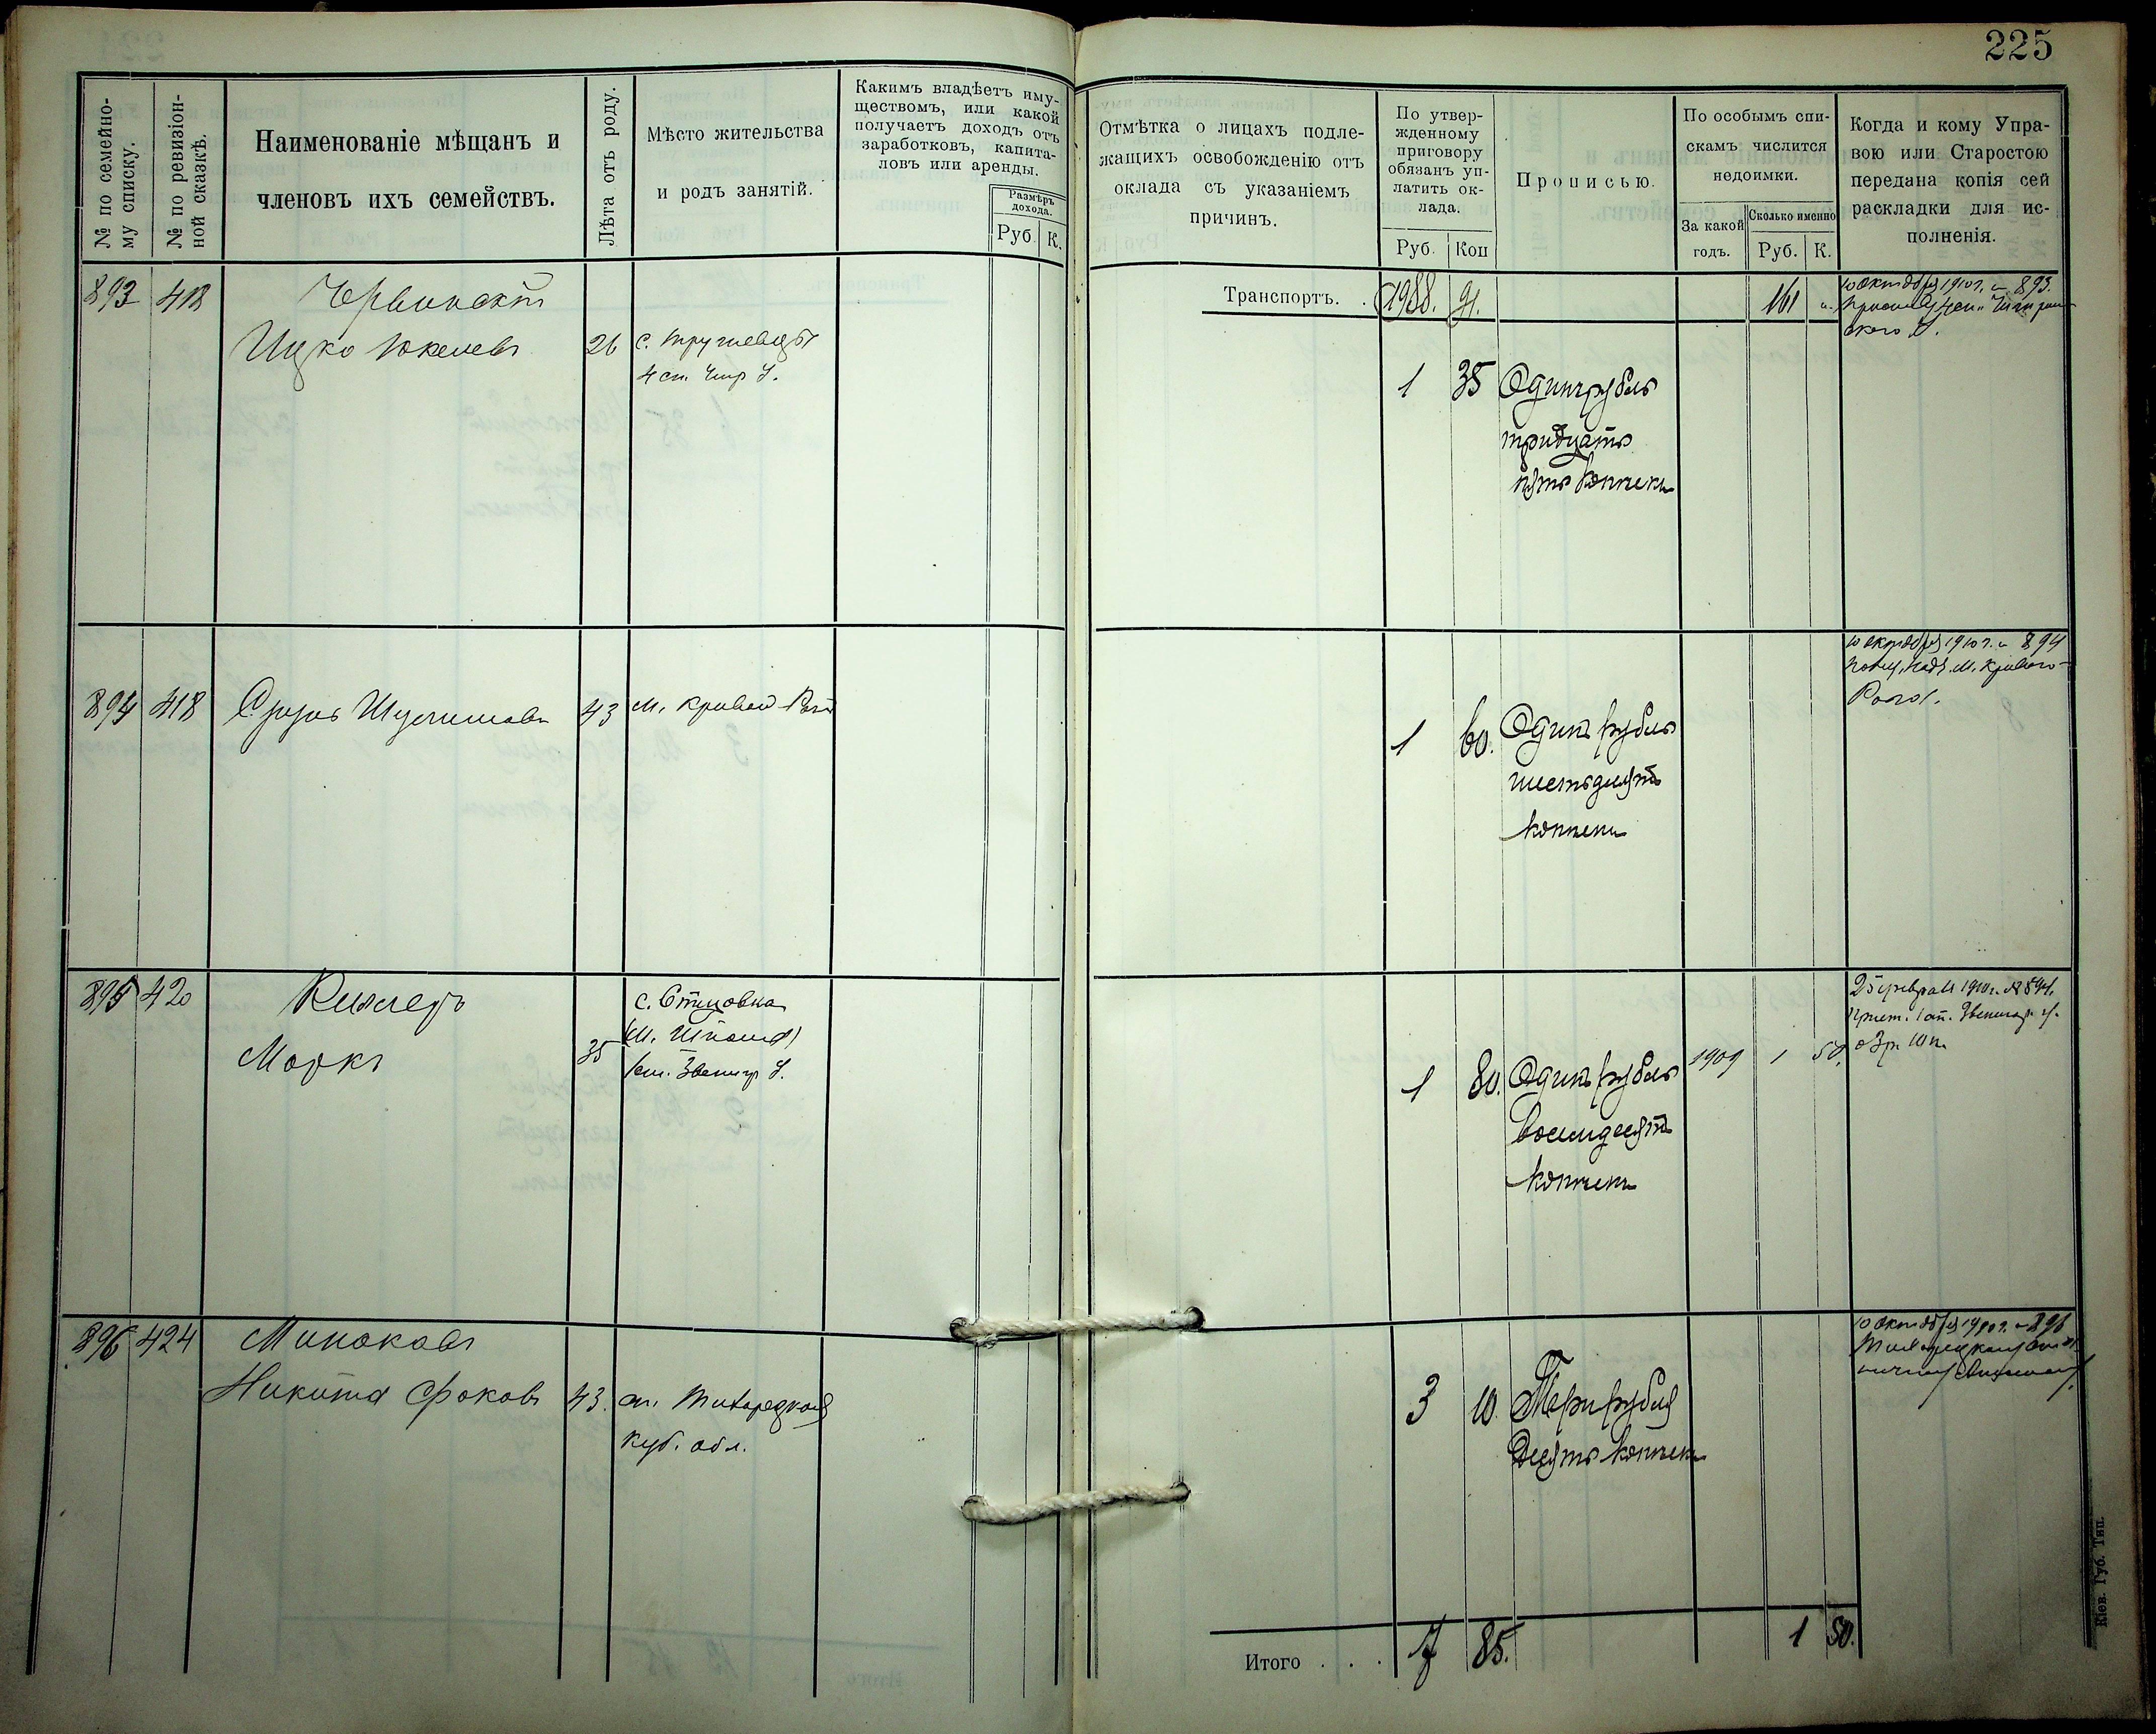 225
№ по семейно-
му списку.
№ по ревизіон-
ной сказкѣ.
Наименованіе мѣщанъ и
членовъ ихъ семействъ.
Лѣта отъ роду.
Мѣсто жительства
и родъ занятій.
Какимъ владѣетъ иму-
ществомъ, или какой
получаетъ доходъ отъ
заработковъ, капита-
ловъ или аренды.
Размѣръ
дохода.
Руб. К.
Отмѣтка о лицахъ подле-
жащихъ освобожденію отъ
оклада съ указаніемъ
причинъ.
По утвер-
жденному
приговору
обязанъ уп-
латить ок-
лада.
Руб. Коп
Прописью.
По особымъ спи-
скамъ числится
недоимки.
За какой
годъ.
Сколько именно
Руб. К.
Когда и кому Упра-
вою или Старостою
передана копія сей
раскладки для ис-
полненія.
Транспортъ. . 1988. 91. 161
893 418 Червинскій
Ицко Юкелевъ 26
4 ст. Чигр У.
10 октября 1910 г. 893.
1 35 Одинъ рубль
тридцать
пять копѣекъ
894 418 Сруль 43 м. Кривой Рогъ
1 60. Одинъ рубль
шестьдесятъ
копѣекъ
10 октября 1910 г. 894
м. Кривого
Рога.
895 420
Маркъ 35
(м. Шпола)
1 ст. Звенигр У.
1 80. Одинъ рубль
восемдесятъ
копѣекъ
1909 1 50.
25 февраля 1910 г. №
Прист. 1 ст. Звенигор. у.
о 3 р. 10 к.
896 424 Минаковъ
Никита Фоковъ 43. ст. Тихорецкая
Куб. обл.
3 10. Три рубля
десять копѣекъ
10 октября 1910 г. 896
Итого . . . 7 85. 1 50.
Кіев. Губ. Тип.